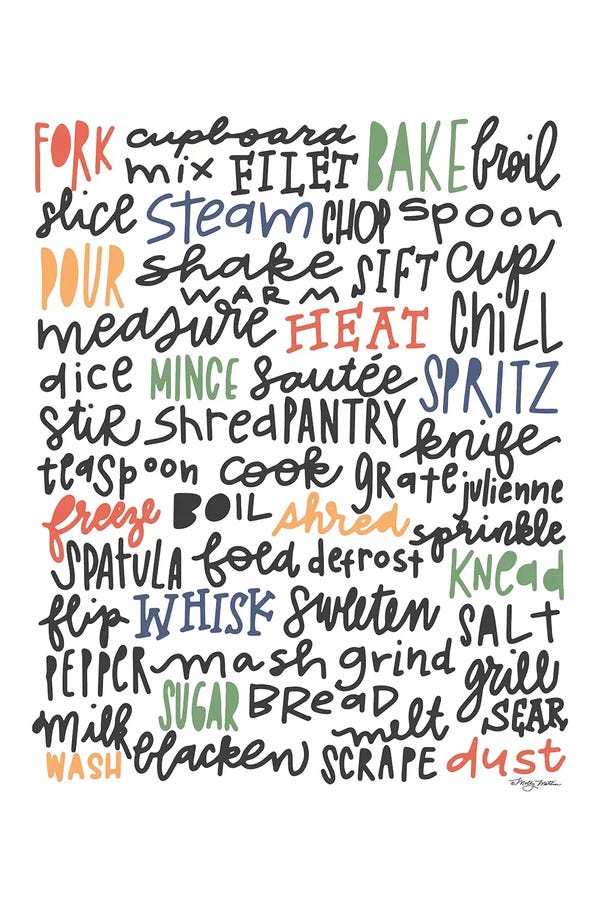 FORK cupboard BAKE broil
mix FILET
slice Steam CHOP spoon
POUR shake SIFT cup
WARM
measure HEAT CHiLL
dice MINCE Sautée SPRITZ
StiR shred PANTRY knife
teaspoon cook gRate julienne
freeze BOIL shred sprinkle
SPATULA fold defrost KNead
flip WHISK Sweeten SALT
PEPPER mash grind grill
SUGAR BReaD melt SEAR
milk blacken SCRAPE dust
WASH